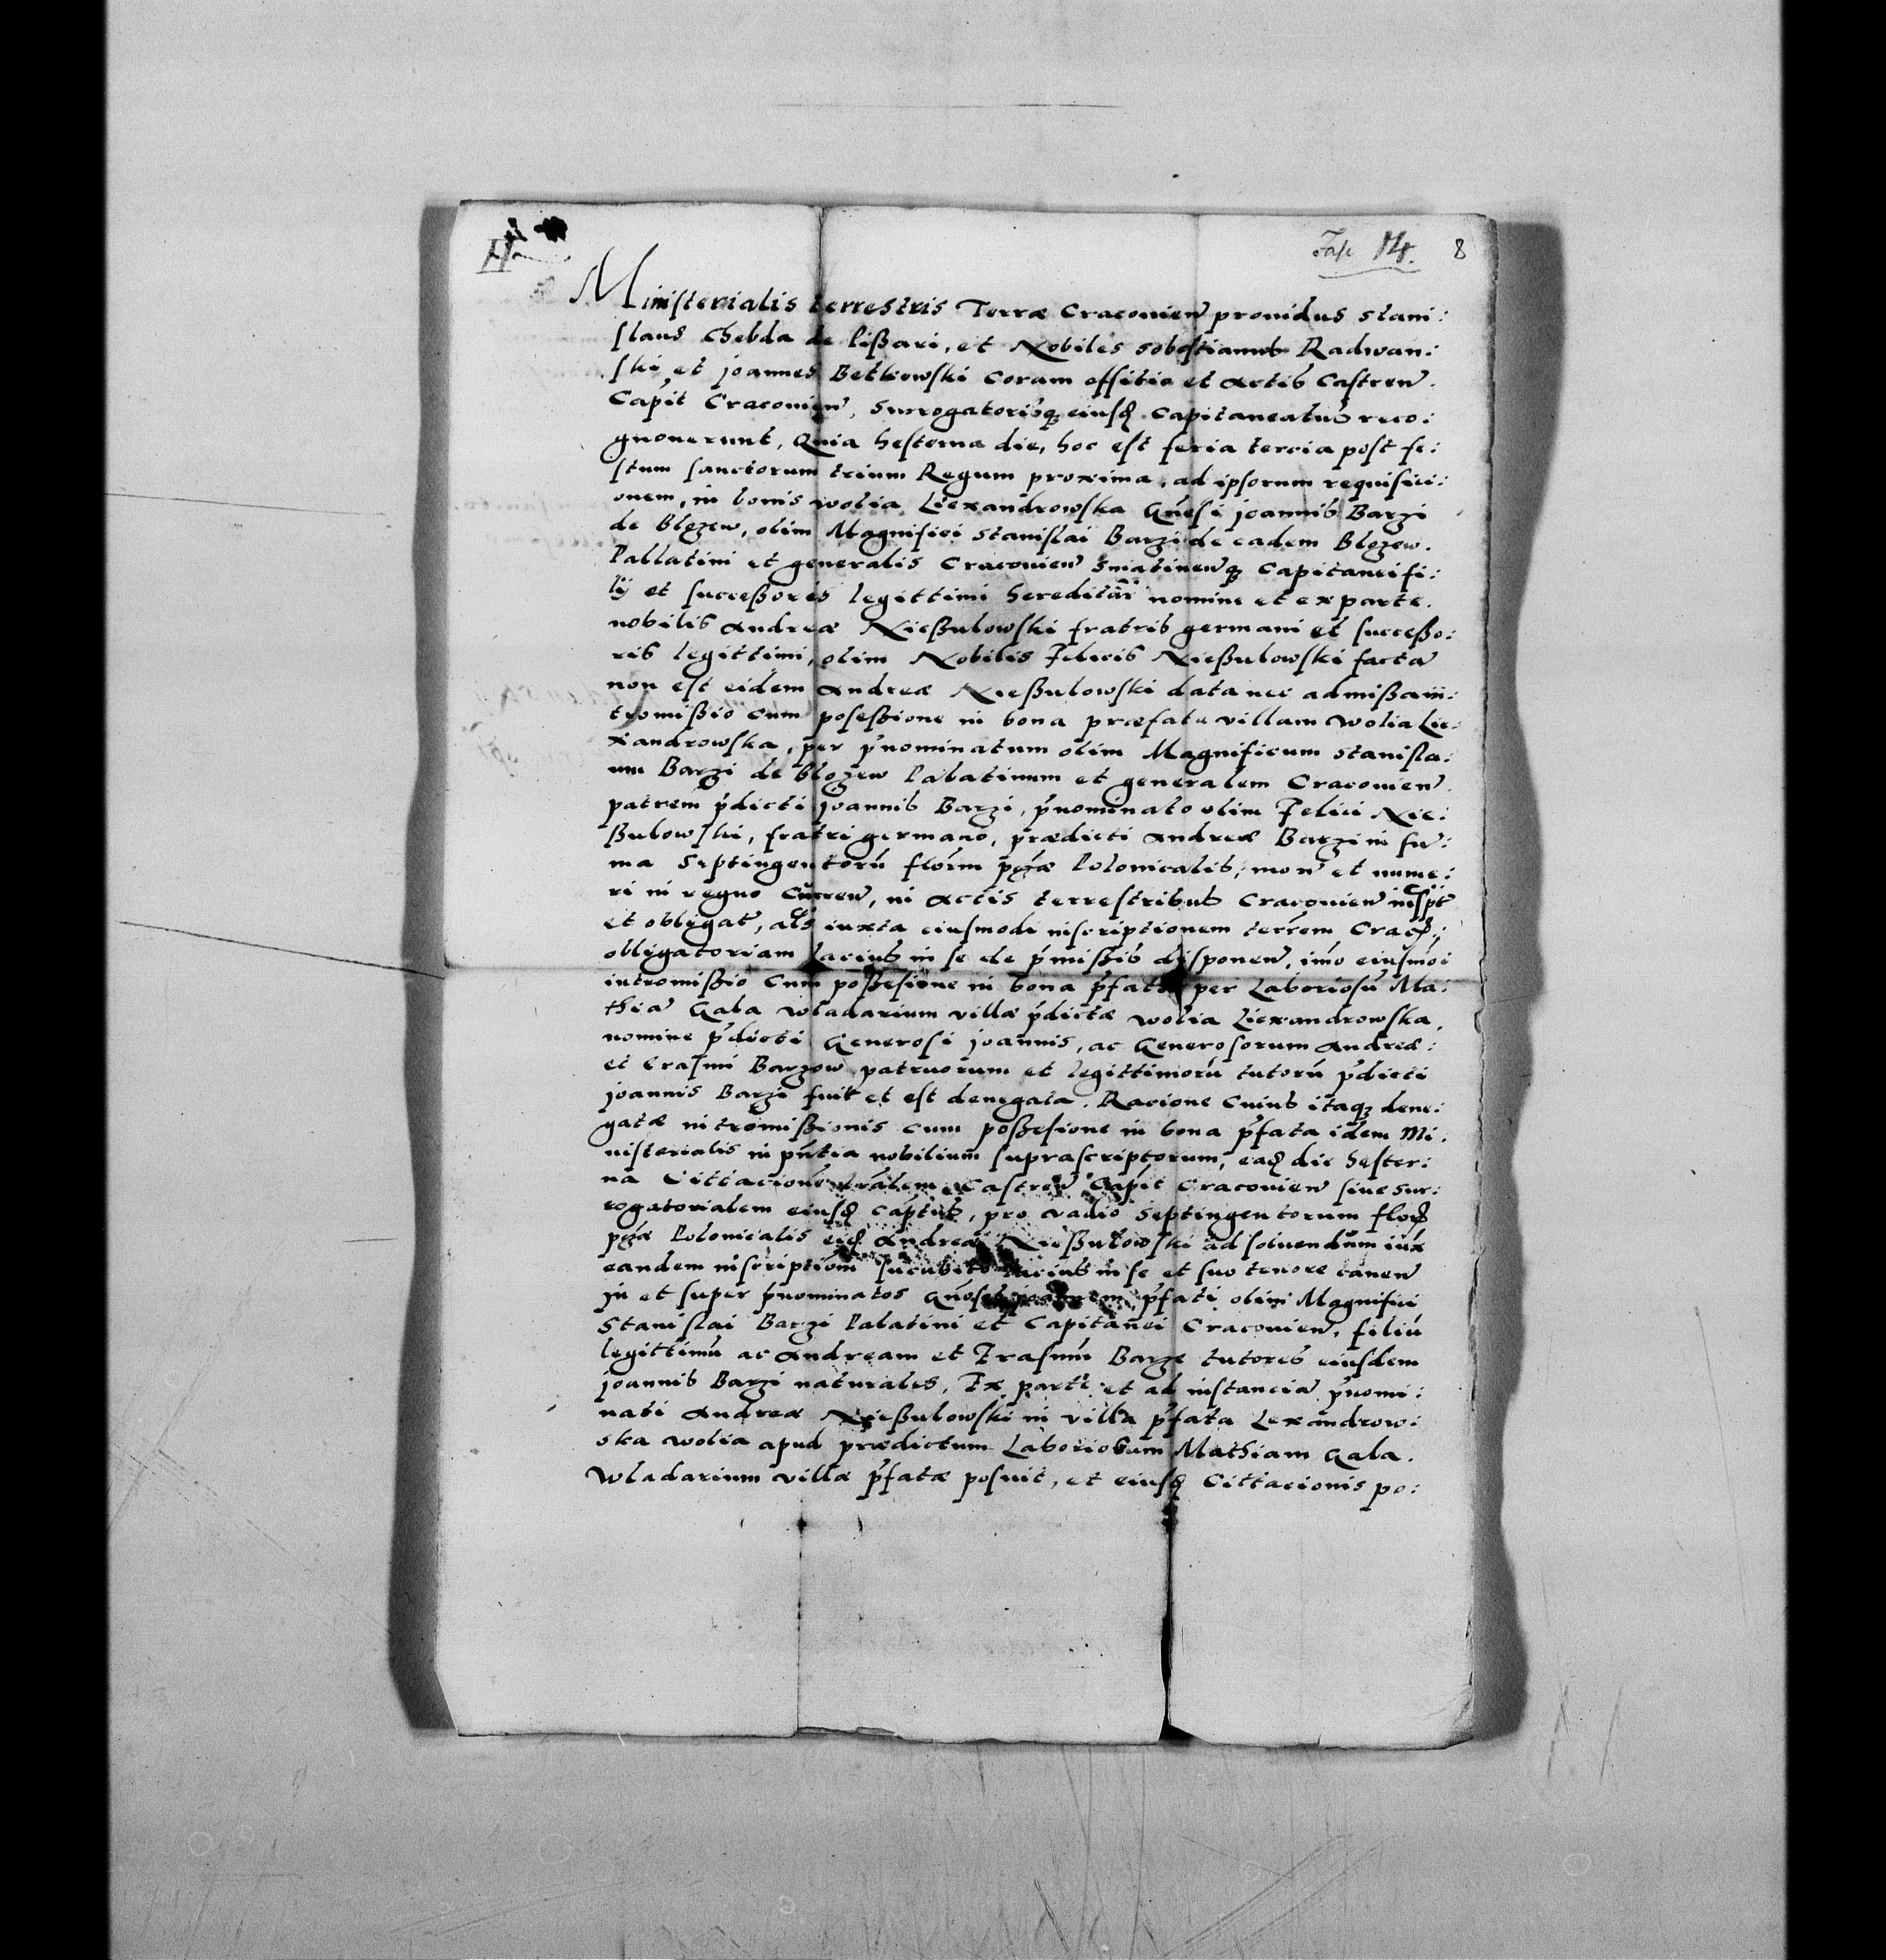 Fasc 14. 8
Ministerialis terrestris Terræ Cracouien̄ prouidus stani:
slaus Chebda de lißari, et Nobiles sobestianus Radwan:
ski et joannes Betkowski Coram offitio et Actis Castren̄.
Capit Cracouien̄, surrogatorisq̨ eiusd̨ Capitaneatus reco:
gnouerunt, Quia hesterna die, hoc est feria tercia post fe:
stum sanctorum trium Regum proxima, ad ipsorum requisici:
onem, in bonis wolia Liexandrowska Gn̄esi joannis Barzi
de Blozew, olim Magnifici Stanislai Barzi de eadem Blozew.
Pallatini et generalis Cracouien̄ Smatinenq̨ Capitanei fi:
lij et succeßoris legittimi hereditar̄ nomine et ex parte.
nobilis Andreæ Nießulowski fratris germani et succeßo:
ris legittimi, olim Nobilis Felicis Nießulowski facta
non est eidem Andreæ Nießulowski data nec admißa in:
tromißio cum poseßione in bona præfata villam wolia Lie:
xandrowska, per p̄nominatum olim Magnificum Stanisla:
um Barzi de blozew Palatinum et generalem Cracouien̄.
patrem p̄dicti joannis Barzi, p̄nominato olim Felici Nie:
ßulowski, fratri germano, prædicti Andreæ Barzi in su̅:
ma septingentorū florīn pqȩ Polonicalis, mon̄ et nume:
ri in regno Cūrren̄, in Actis terrestribus Cracouien̄ inscpt
et obligat, als iuxta eiusmodi inscriptionem terrēm Crac̨:
obligatoriam lacius in se de p̄mißis disponen̄, imo eiusmoi
intromißio Cum poßesione in bona p̄fata per Laboriosū Ma:
thia̅ Gala wladarium villæ p̄dictæ wolia Liexandrowska,
nomine p̄dicti Generosi joannis, ac Generosorum Andreæ:
et Erasmi Barzow patruorum et legittimorū tutorū p̄dicti
joannis Barzi fuit et est denegata. Racione Cuius itaq̨ dene:
gatæ intromißionis cum poßesione in bona p̄fata idem Mi.
nisterialis in pn̄tia nobilium suprascriptorum, ead̨ die hester:
na Cittacionē Castren̄ Capit Cracouien̄ siue sur:
rogatorialem eiusd̨ Captus, pro vadio septingentorum flor̨
pqȩ Polonicalis eid̨ Andreæ Nießulowski ad soluendum iux
eandem inscriptiōm sucubito lacius in se et suo tenore canen̄
in et super p̄nominatos Gn̄osos joannem p̄fati olim Magnifici
Stanislai Barzi Palatini et Capitanei Cracouien̄, filiū
legittimū ac Andream et Erasmū Barze tutores eiusdem
joannis Barzi naturales, Ex parte et ad instancia̅ p̄nomi:
nati Andreæ Nießulowski in villa p̄fata Lexandrow:
ska wolia apud prædictum Laboriosum Mathiam Gala.
Wladarium villæ p̄fatæ posuit, et eiusd̨ Cittacionis po: